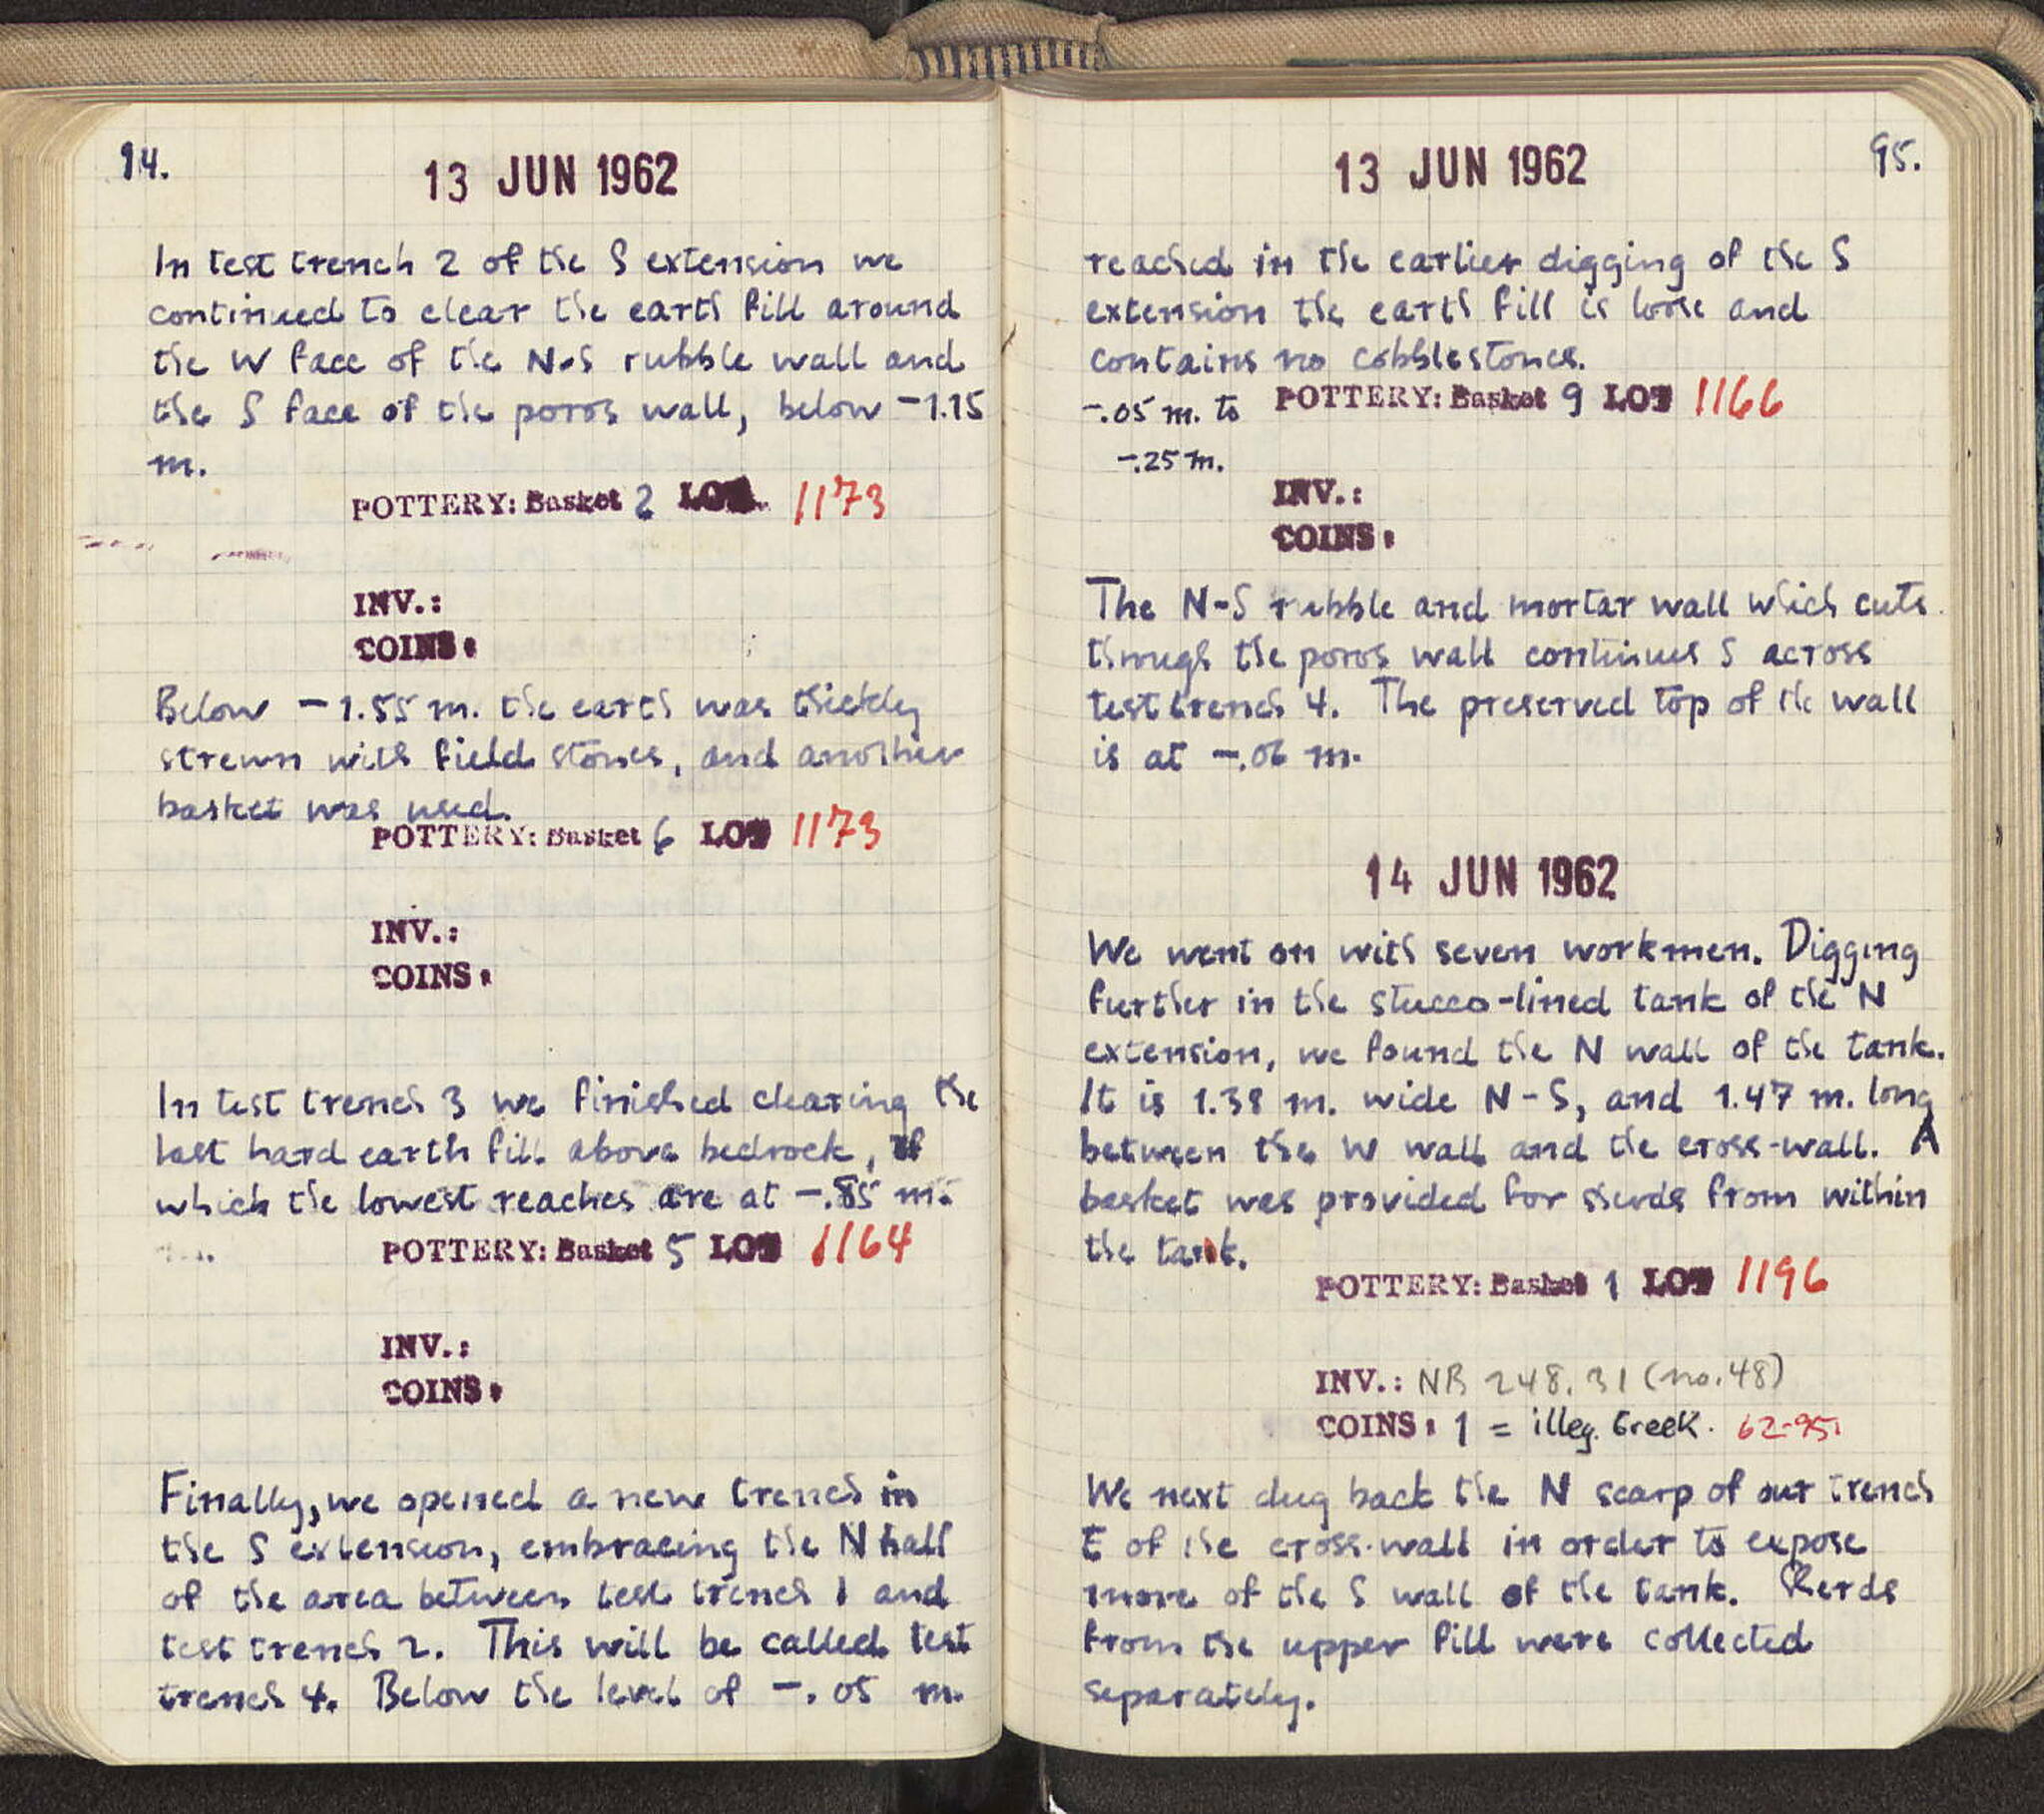 94.
13 JUN 1962
In test trench 2 of the S extension we
continued to clear the earth fill around
the W face of the N-S rubble wall and
the S face of the poros wall, below -1.15
m.
POTTERY: Basket 2 LOT 1173
INV.:
COINS:
Below -1.55 m. the earth was thickly
strewn with field stones, and another
basket was used.
POTTERY: Basket 6 LOT 1173
INV.:
COINS:
In test trench 3 we finished clearing the
last hard earth fill above bedrock, of
which the lowest reaches are at -.85 m.
POTTERY: Basket 5 LOT 1164
INV.:
COINS:
Finally, we opened a new trench in
the S extension, embracing the N half
of the area between test trench 1 and
test trench 2. This will be called test
trench 4. Below the level of -.05 m.
13 JUN 1962
95.
reached in the earlier digging of the S
extension the earth fill is loose and
contains no cobblestones.
-.05 m. to POTTERY: Basket 9 LOT 1166
-.25 m.
INV.:
COINS:
The N-S rubble and mortar wall which cuts
through the poros wall continues S across
test trench 4. The preserved top of the wall
is at -.06 m.
14 JUN 1962
We went on with seven workmen. Digging
further in the stucco-lined tank of the N
extension, we found the N wall of the tank.
It is 1.38 m. wide N-S, and 1.47 m. long
between the W wall and the cross-wall. A
basket was provided for sherds from within
the tank.
POTTERY: Basket 1 LOT 1196
INV.: NB 248.31 (no.48)
COINS: 1 = illeg. Greek. 62-95.
We next dug back the N scarp of our trench
E of the cross-wall in order to expose
more of the S wall of the tank. Sherds
from the upper fill were collected
separately.